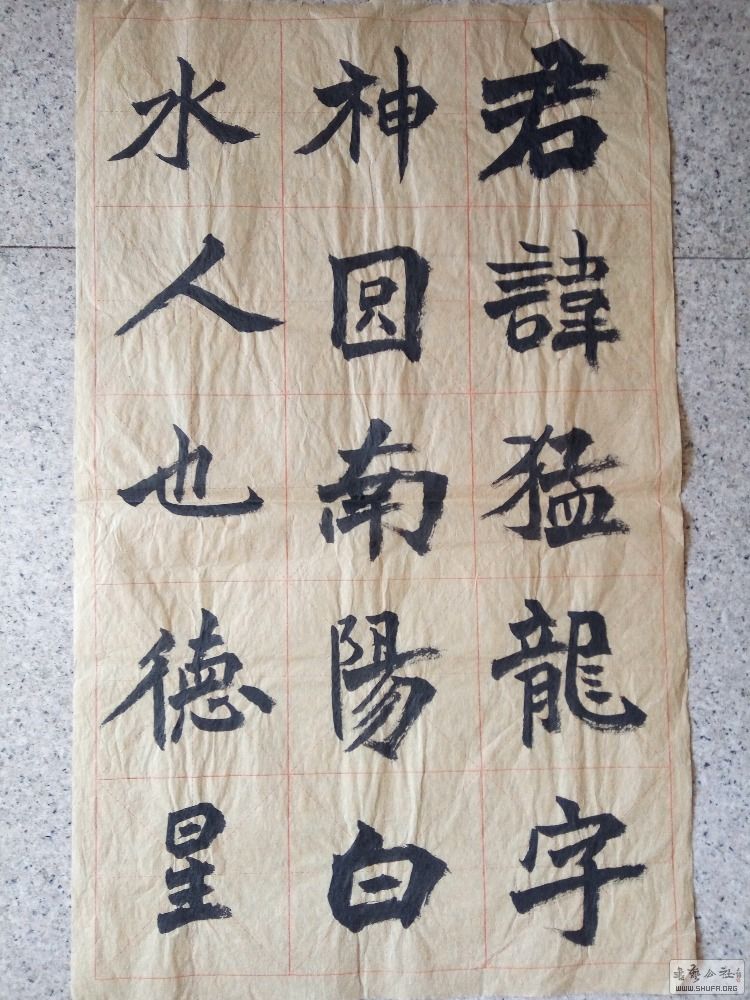 君諱猛龍字
神圓南陽白
水人也德星
WWW.SHUFA.ORG